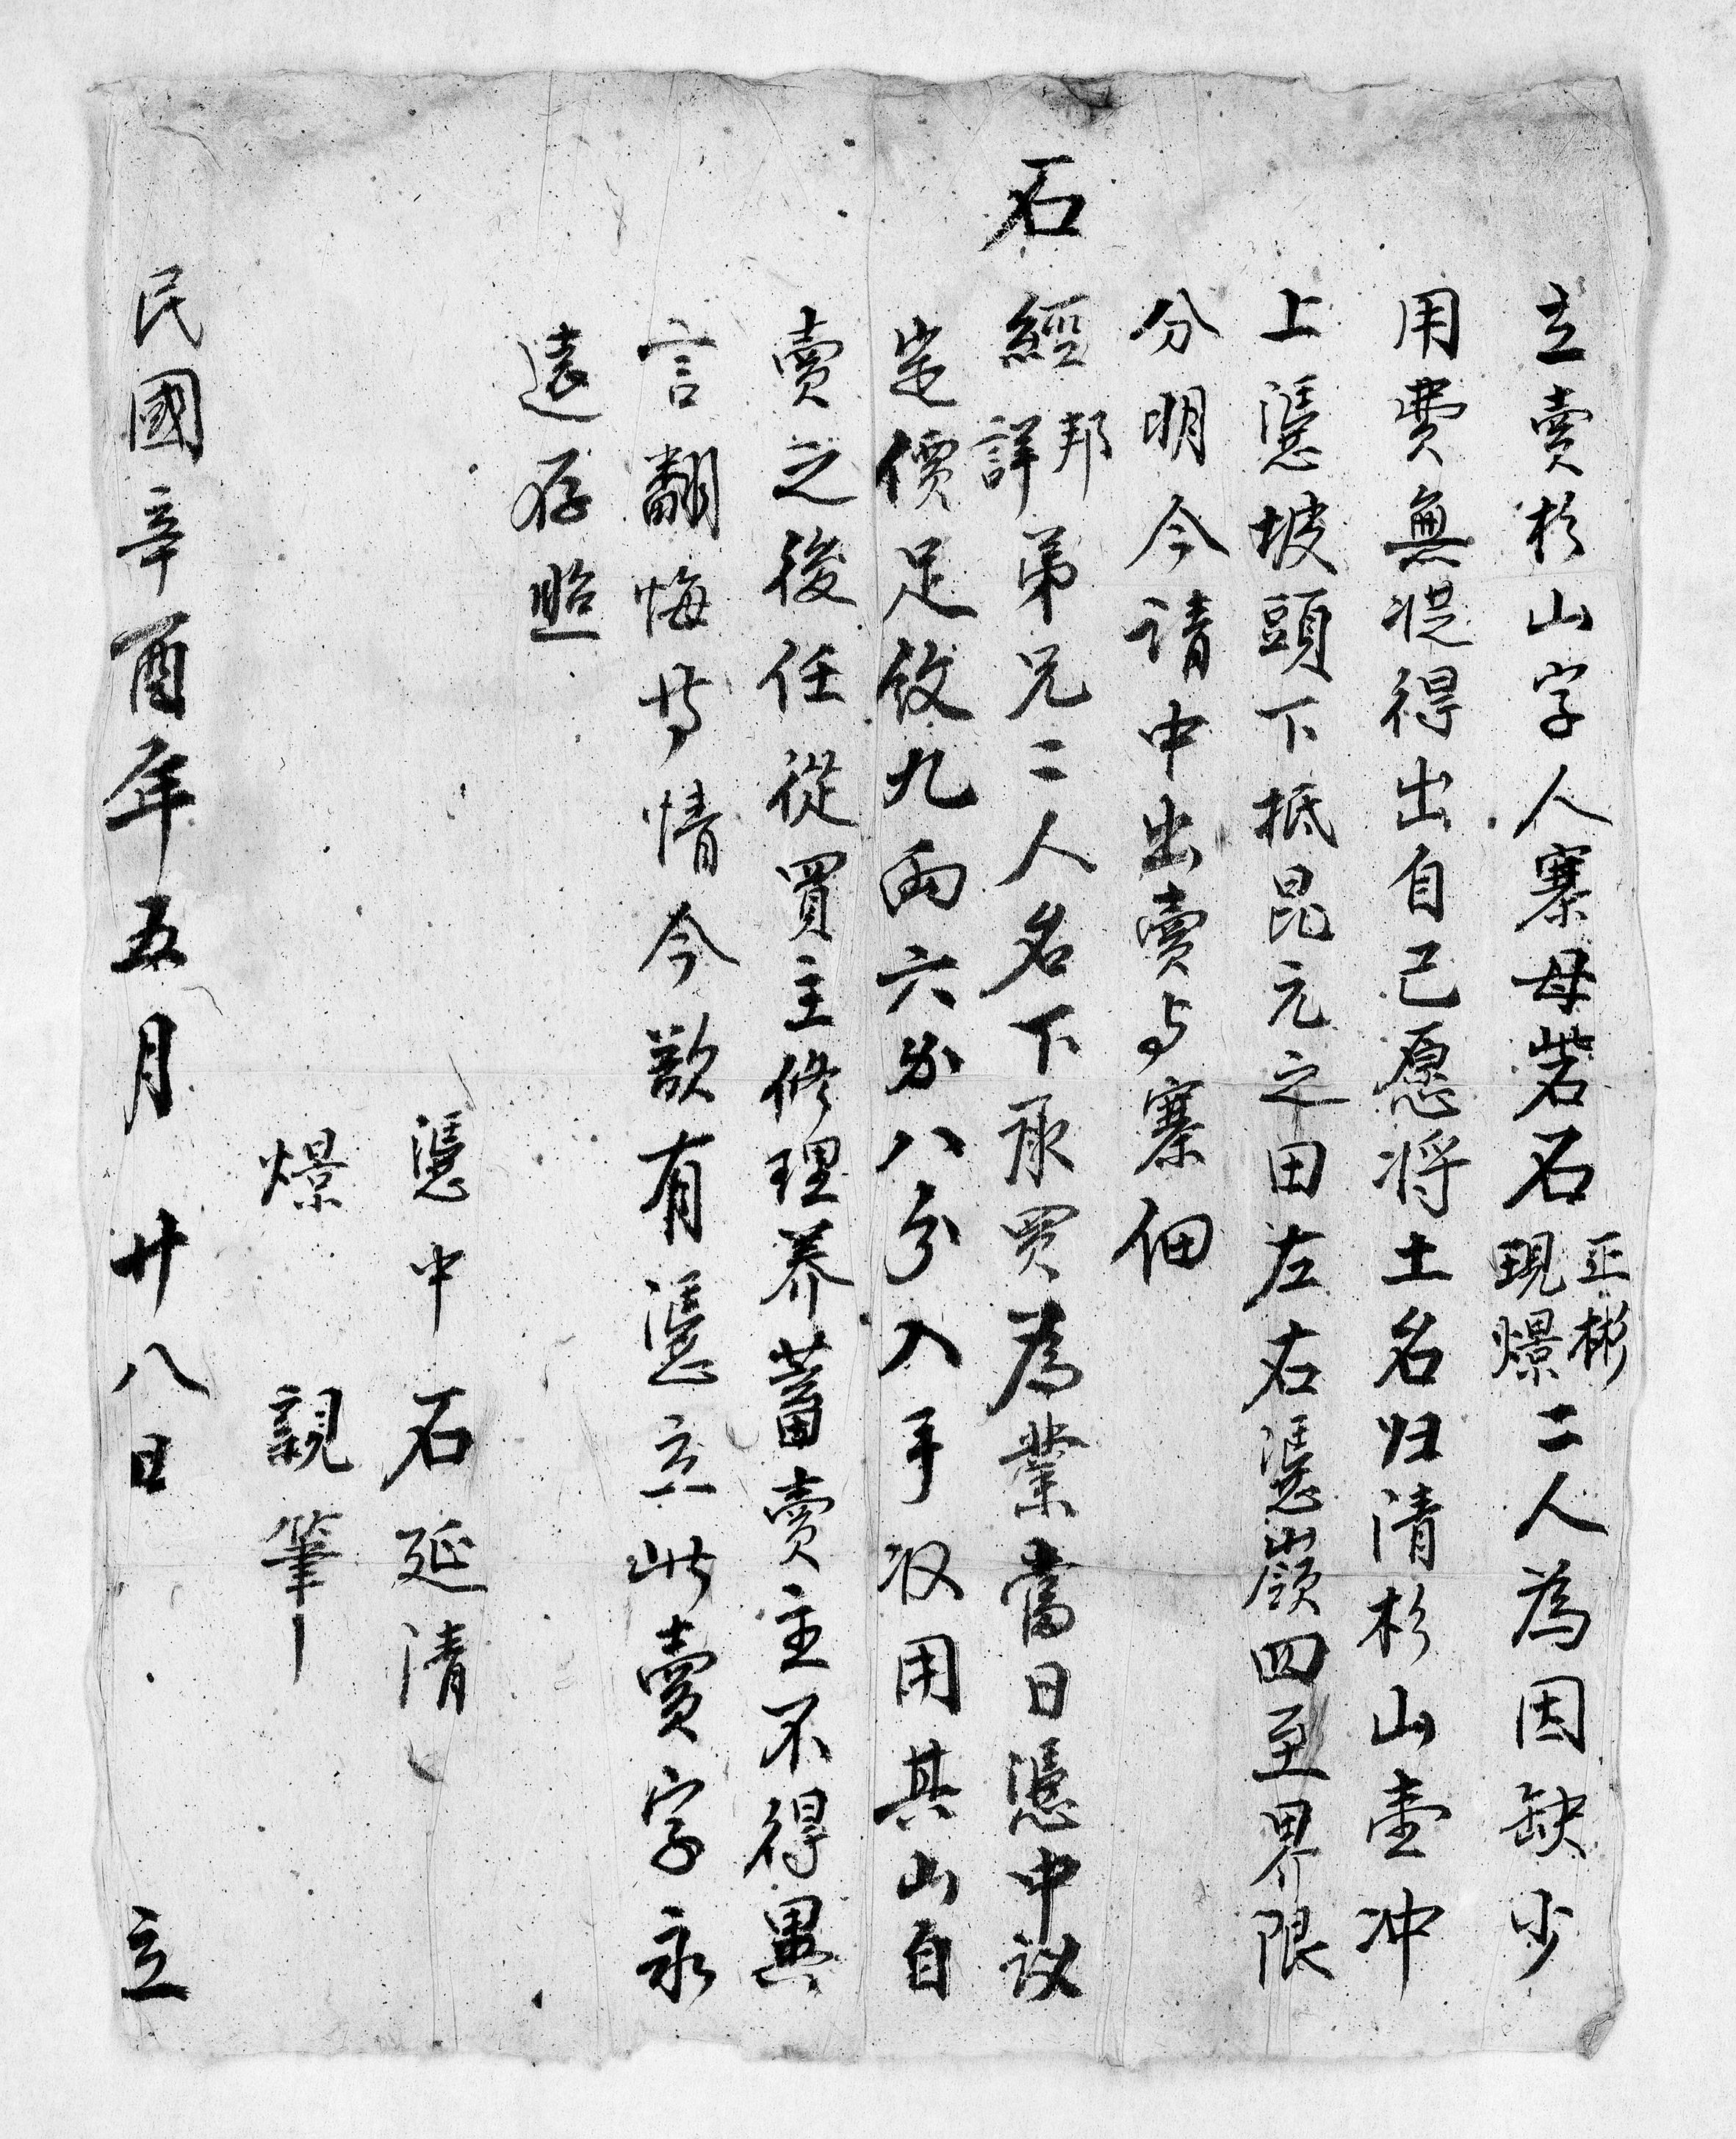 立賣杉山字人寨母砦石正彬現燝二人為因缺少
用費無從得出自己愿將土名归清杉山壹冲
上憑坡頭下抵昆元之田左右憑嶺四至界限
分明今请中出賣与寨佃
石經邦詳弟兄二人名下承買為業當日憑中议
定價足紋九両六分八分入手収用其山自
賣之後任從買主修理养蓄賣主不得異
言翻悔等情今欲有憑立此賣字永
遠存照
憑中石延清
燝親筆
民國辛酉年五月廿八日立